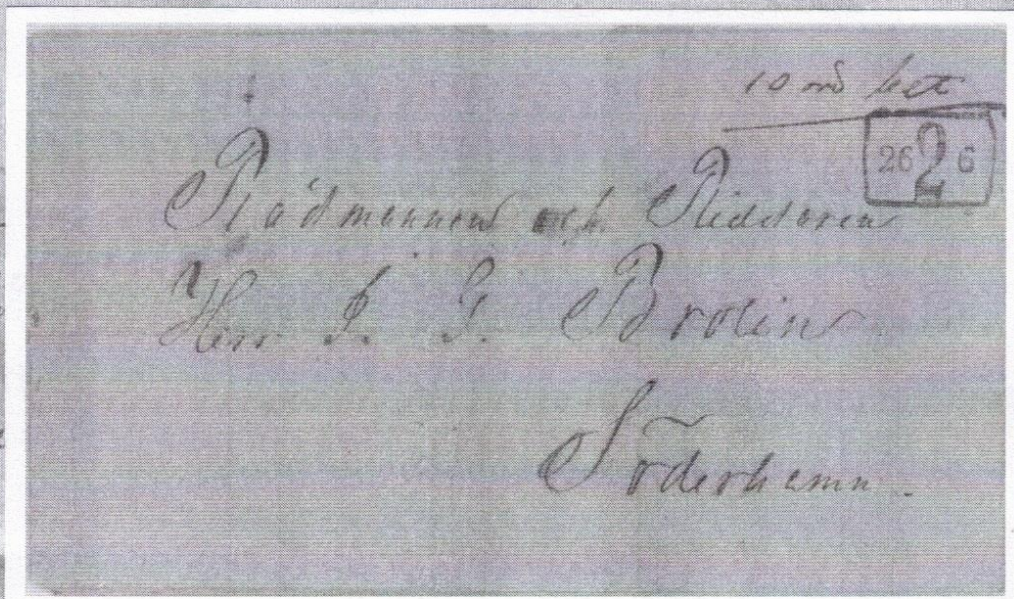 10
26 2 6
Rådmannen och Riddaren
Herr J. G. Brolin
Söderhamn.